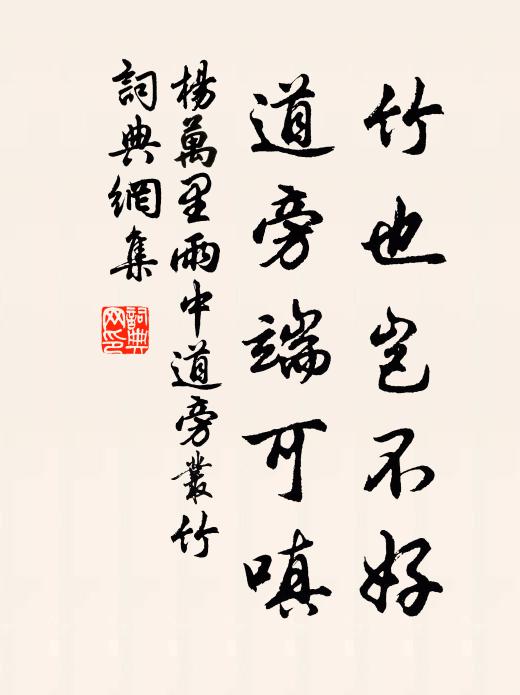 竹也岂不好
道旁端可嗔
楊萬里雨中道旁叢竹
詞典網集
詞典网印